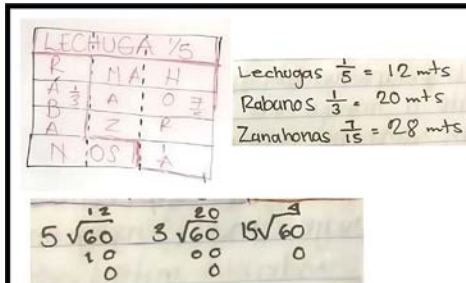 LECHUGA 1/5
R
Á 1/3
B
A
N OS
M A H
A O 7
Z R
A
Lechugas 1/5 = 12 mts
Rabanos 1/3 = 20 mts
Zanahorias 7/15 = 28 mts
12
5 √60
10
0
20
3 √60
00
0
4
15 √60
0